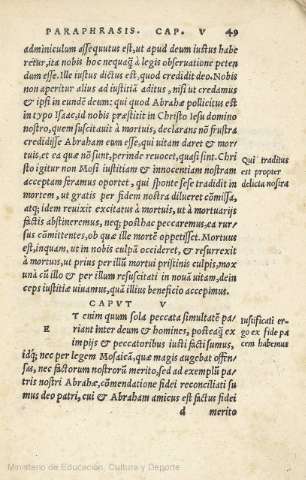 PARAPHRASIS. CAP. V 49
adminiculum assequutus est, ut apud deum iustus habe
retur, ita nobis hoc nequaq̃ à legis observatione peten
dum esse. Ille iustus dictus est, quod credidit deo. Nobis
non aperitur alius ad iustitiā aditus, nisi ut credamus
& ipsi in eundē deum: qui quod Abrahæ pollicitus est
in typo Isaac, id nobis præstitit in Christo Iesu domino
nostro, quem suscitauit à mortuis, declarans nō frustra
credidisse Abraham eum esse, qui uitam daret & mor
tuis, et ea quæ nō sunt, perinde reuocet, quasi sint. Chri
sto igitur non Mosi iustitiam & innocentiam nostram
acceptam feramus oportet, qui sponte sese tradidit in
mortem, ut gratis per fidem nostra dilueret cōmissa,
atq; idem reuixit excitatus à mortuis, ut à mortuarijs
factis abstineremus, neq; posthac peccaremus, ea rur
sus cōmittentes, ob quæ ille mortē oppetisset. Mortuus
est, inquam, ut in nobis culpā occideret, & resurrexit
à mortuis, ut per illum mortui pristinis culpis, mox
unà cū illo & per illum resuscitati in nouā uitam, dein
ceps iustitiæ uiuamus, quā illius beneficio accepimus.
Qui traditus
est propter
delicta nostra
CAPVT V
ET enim quum sola peccata simultatē pa
riant inter deum & homines, posteaq̃ ex
impijs & peccatoribus iusti facti sumus,
idq; nec per legem Mosaicā, quæ magis augebat offen
sas, nec factorum nostrorū merito, sed ad exemplū pa
tris nostri Abrahæ, cōmendatione fidei reconciliati su
mus deo patri, cui & Abraham amicus est factus fidei
Iustificati er-
go ex fide pa
cem habemus
d merito
Ministerio de Educación, Cultura y Deporte